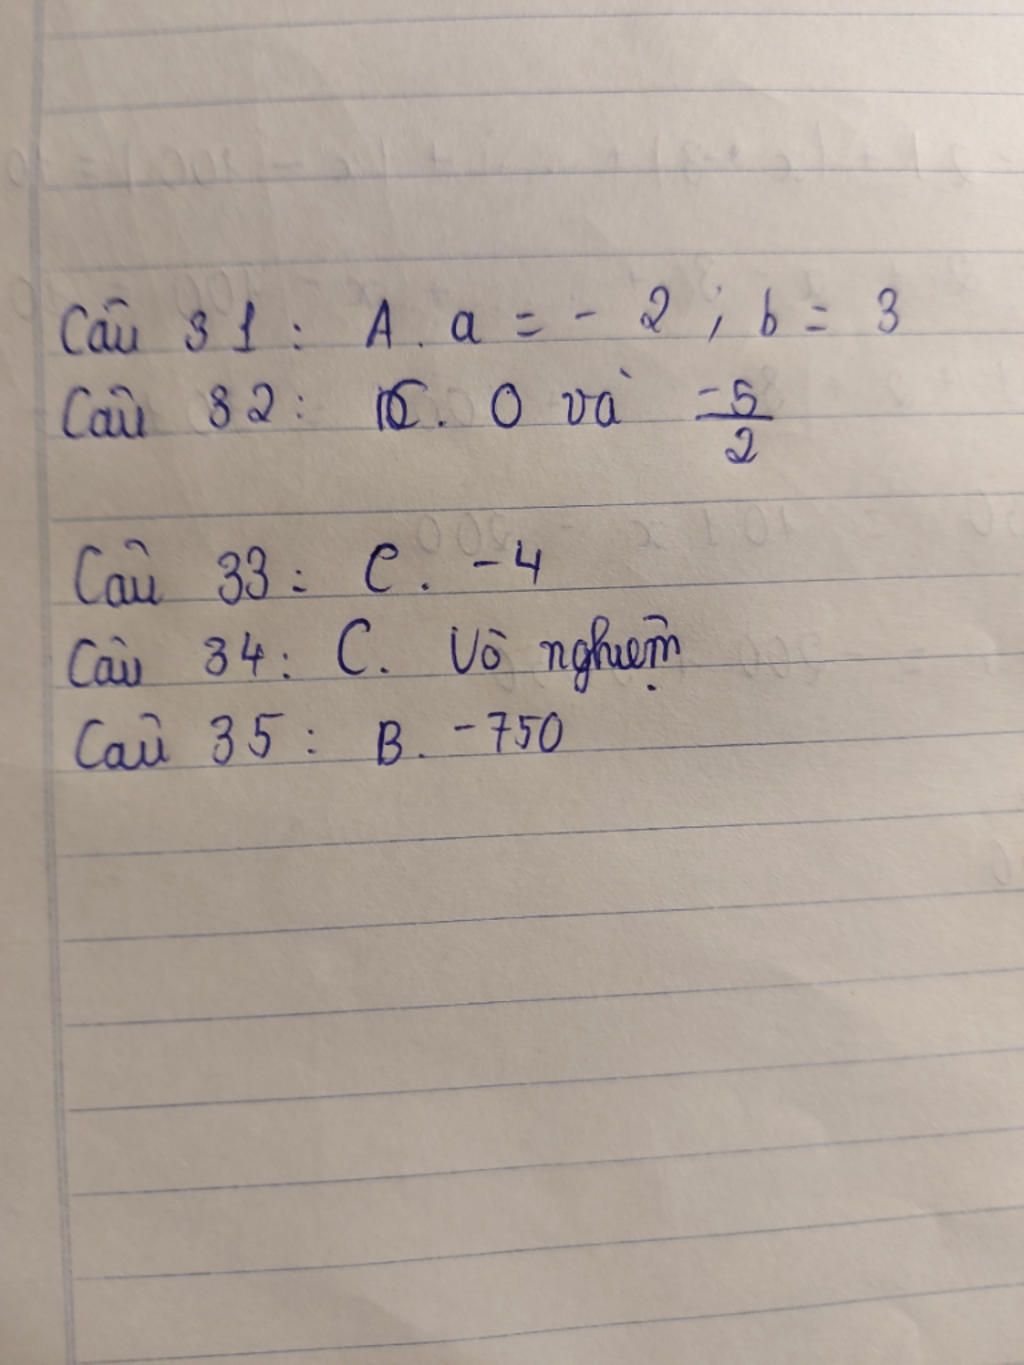 Câu 31: A. a = - 2 ; b = 3
Câu 32: C. 0 và -5/2
Câu 33: C. -4
Câu 34: C. Vô nghiệm
Câu 35: B. -750